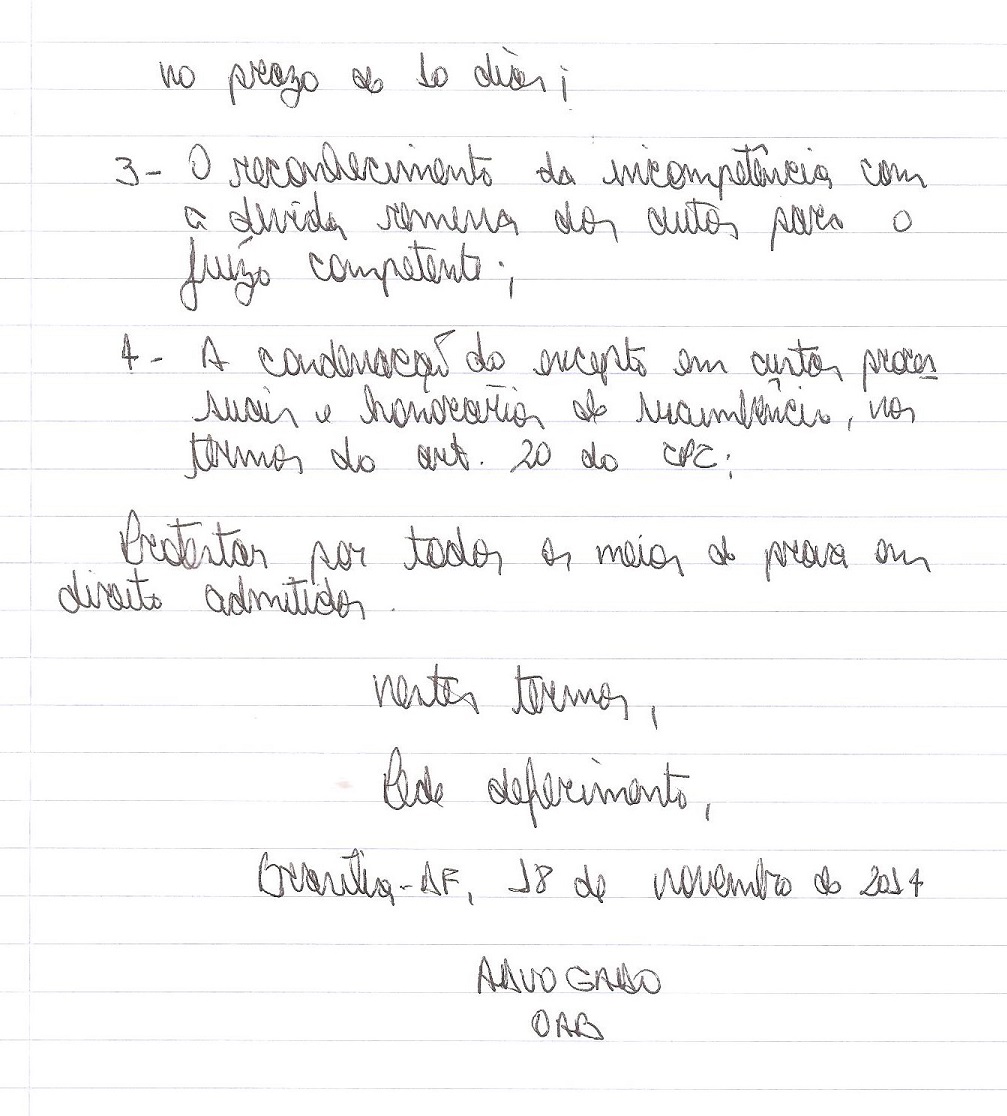 no prazo de 10 dias;
3- O reconhecimento da incompetência com
a devida remessa dos autos para o
juízo competente;
4- A condenação do excepto em custas proces
suais e honorários de sucumbência, nos
termos do art. 20 do CPC;
Protestar por todos os meios de prova em
direito admitidos.
nestes termos,
Pede deferimento,
Brasília-DF, 18 de novembro de 2014
ADVOGADO
OAB